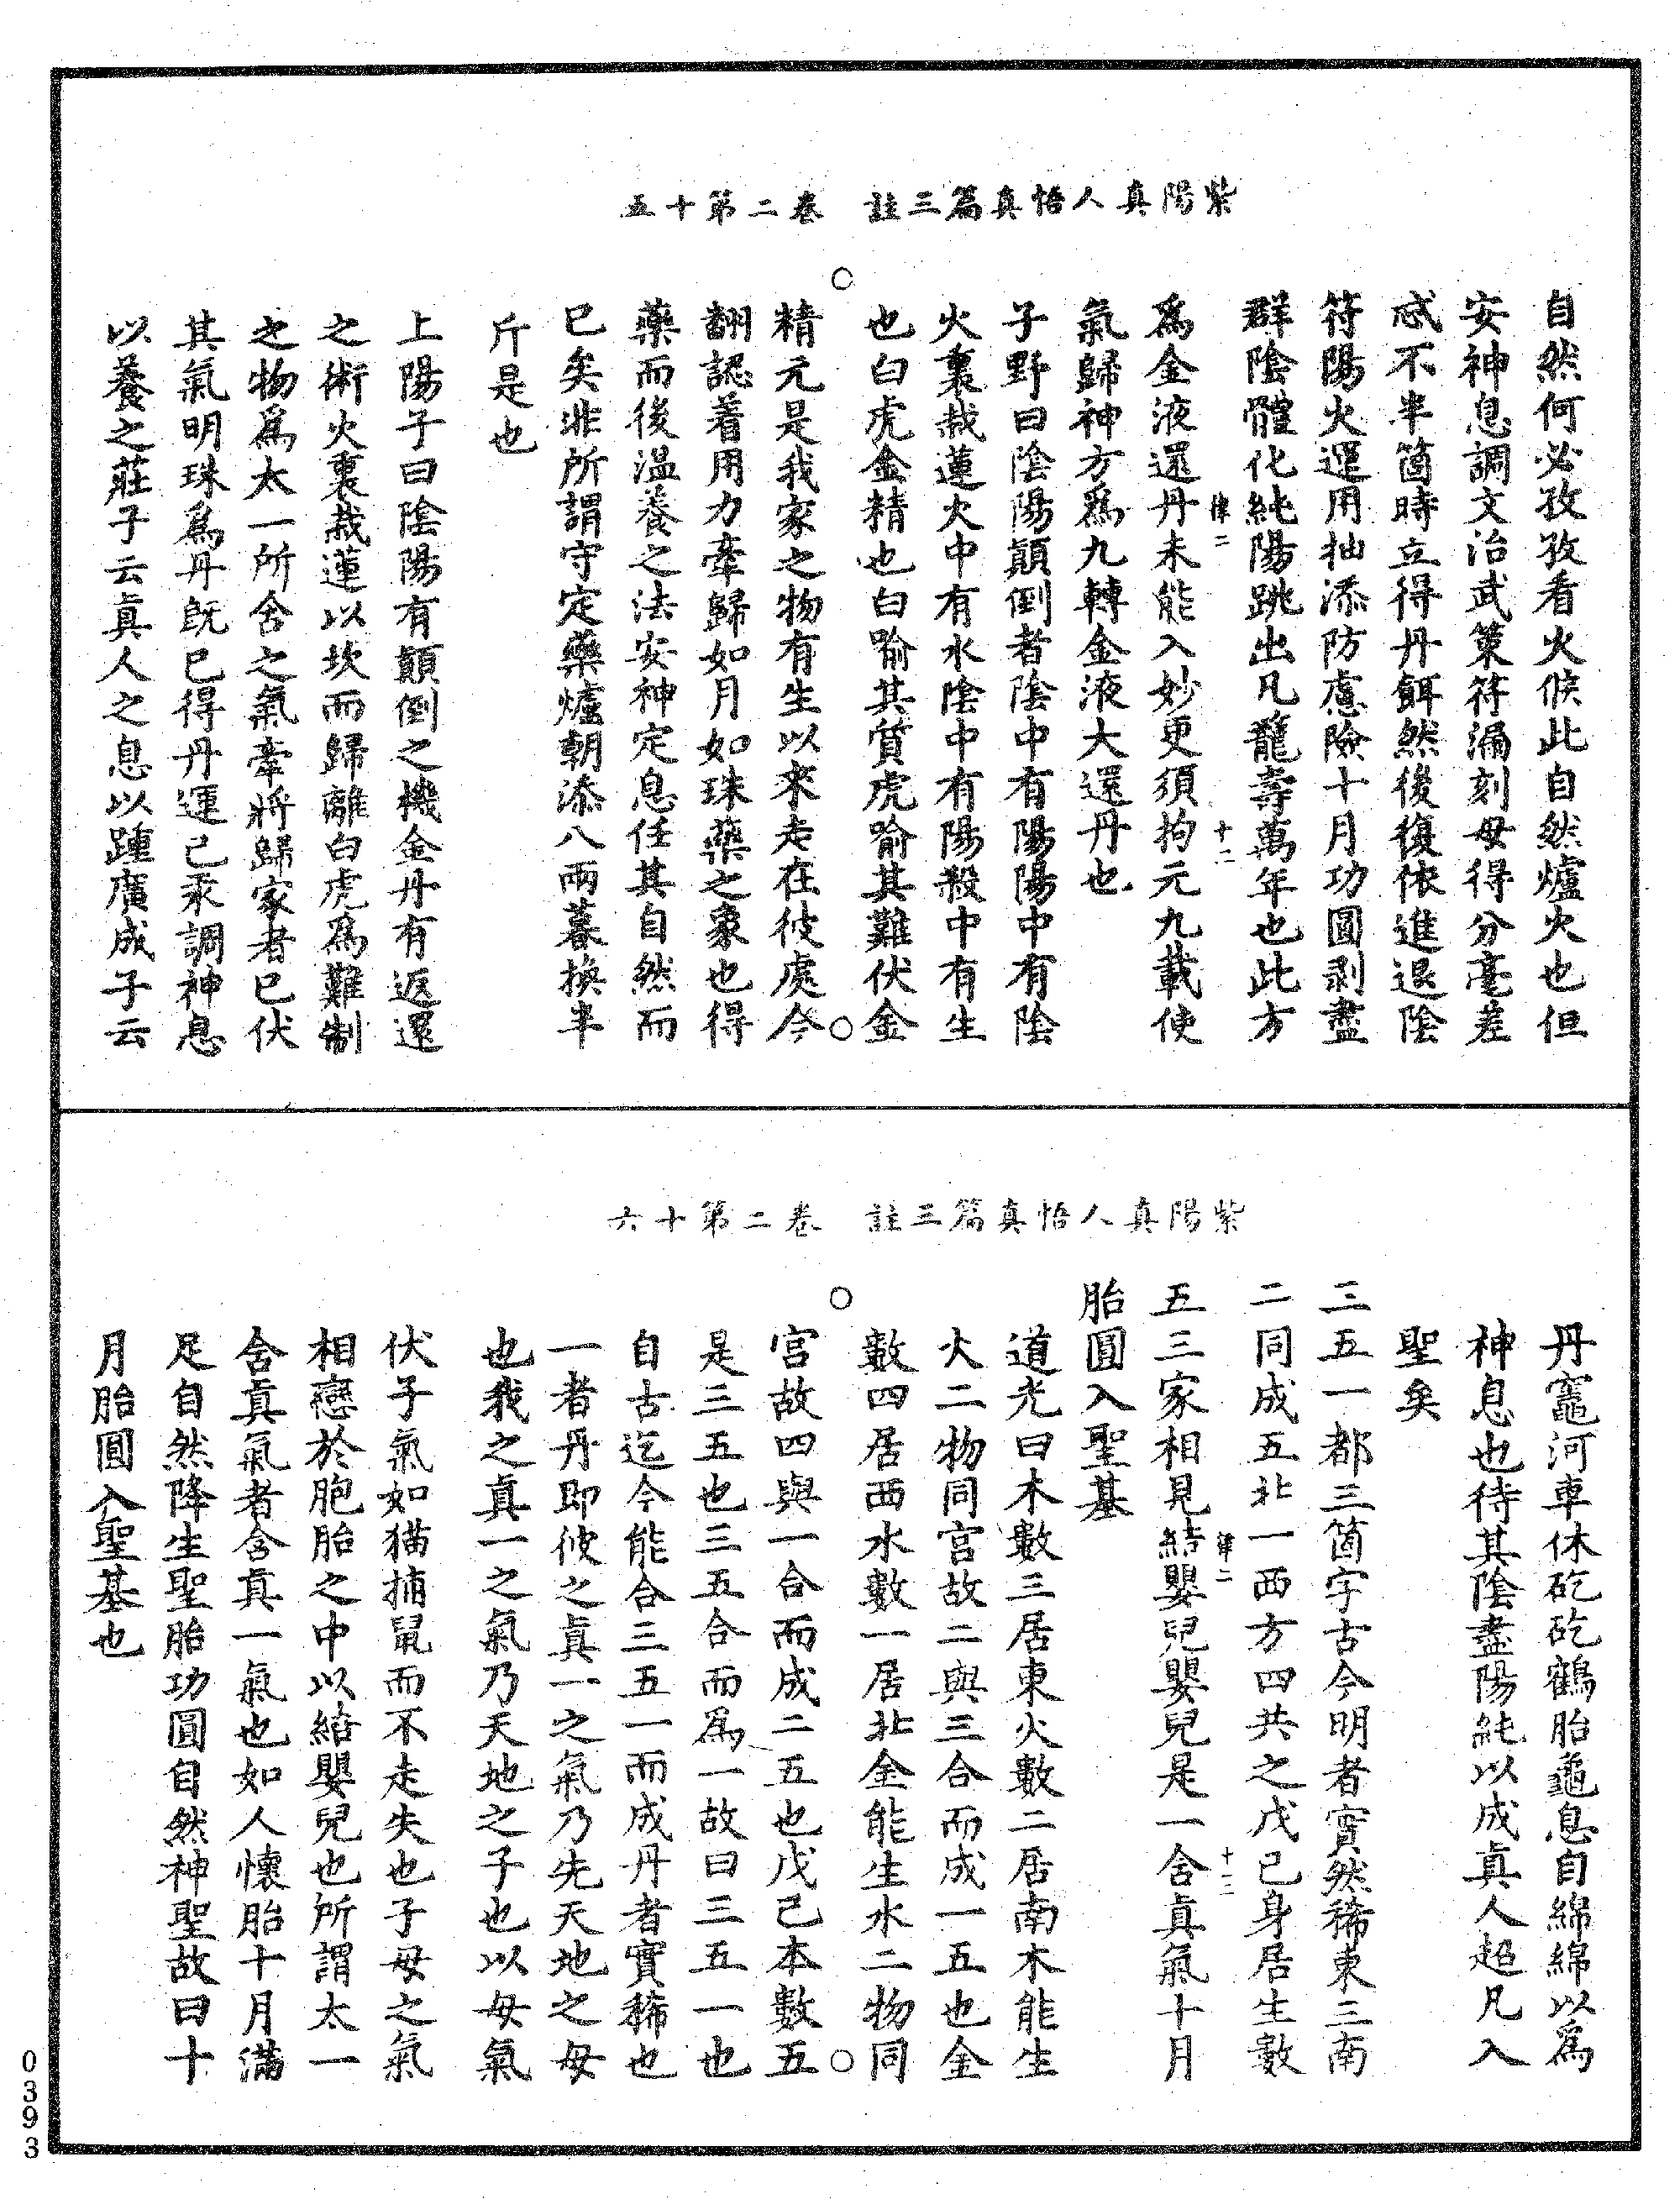 紫陽真人悟真篇三註　卷二第十五
自然何必孜孜看火候此自然爐火也但
安神息調文治武策符漏刻毋得分毫差
忒不半箇時立得丹餌然後復依進退陰
符陽火運用抽添防慮險十月功圓剥盡
群陰體化純陽跳出凡籠壽萬年也此方
律二　十二
爲金液還丹未能入妙更須拘元九載使
氣歸神方爲九轉金液大還丹也
子野曰陰陽顛倒者陰中有陽陽中有陰
火裏栽蓮火中有水陰中有陽殺中有生
也白虎金精也白喻其質虎喻其難伏金
精元是我家之物有生以來走在彼處今
翻認着用力牽歸如月如珠藥之象也得
藥而後温養之法安神定息任其自然而
已矣非所謂守定藥爐朝添八兩暮換半
斤是也
上陽子曰陰陽有顛倒之機金丹有返還
之術火裏栽蓮以坎而歸離白虎爲難制
之物爲太一所含之氣牽將歸家者已伏
其氣明珠爲丹既已得丹運己汞調神息
以養之莊子云真人之息以踵廣成子云
紫陽真人悟真篇三註　卷二第十六
丹竈河車休矻矻鶴胎龜息自綿綿以爲
神息也待其陰盡陽純以成真人超凡入
聖矣
三五一都三箇字古今明者實然稀東三南
二同成五北一西方四共之戊己身居生數
五三家相見結嬰兒嬰兒是一含真氣十月
律二　十三
胎圓入聖基
道光曰木數三居東火數二居南木能生
火二物同宫故二與三合而成一五也金
數四居西水數一居北金能生水二物同
宫故四與一合而成二五也戊己本數五
是三五也三五合而爲一故曰三五一也
自古迄今能合三五一而成丹者實稀也
一者丹即彼之真一之氣乃先天地之母
也我之真一之氣乃天地之子也以母氣
伏子氣如猫捕鼠而不走失也子母之氣
相戀於胞胎之中以結嬰兒也所謂太一
含真氣者含真一氣也如人懷胎十月滿
足自然降生聖胎功圓自然神聖故曰十
月胎圓入聖基也
0393